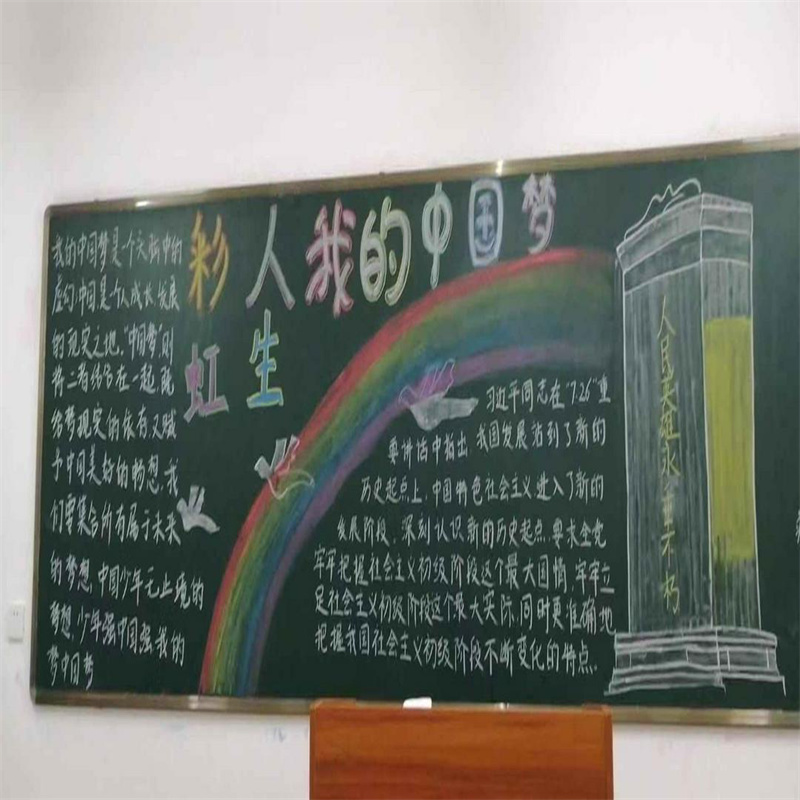 彩虹人生
我的中国梦
我的中国梦是个夸张中的
虚幻,中国是个人成长发展
的现实之地,"中国梦"则
将二者结合在一起,既
给梦现实的依有又赋
予中国美好的畅想,我
们要集合所有属于未来
的梦想,中国少年无止境的
梦想,少年强中国强我的
梦中国梦
习近平同志在"7.26"重
要讲话中指出,我国发展站到了新的
历史起点上,中国特色社会主义进入了新的
发展阶段,深刻认识新的历史起点,要求全党
牢牢把握社会主义初级阶段这个最大国情,牢牢立
足社会主义初级阶段这个最大实际,同时更准确地
把握我国社会主义初级阶段不断变化的特点.
人民英雄永垂不朽